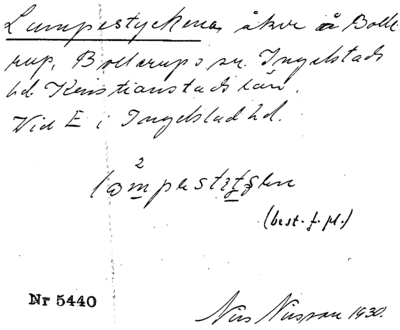 Lumpestyckena, åker å Bolle
rup, Bollerups sn. Ingelstads
hd. Kristianstads län.
Vid E i Ingelstad hd.
2
(best. f. pl.)
Nr 5440
Nils Nilsson 1930.